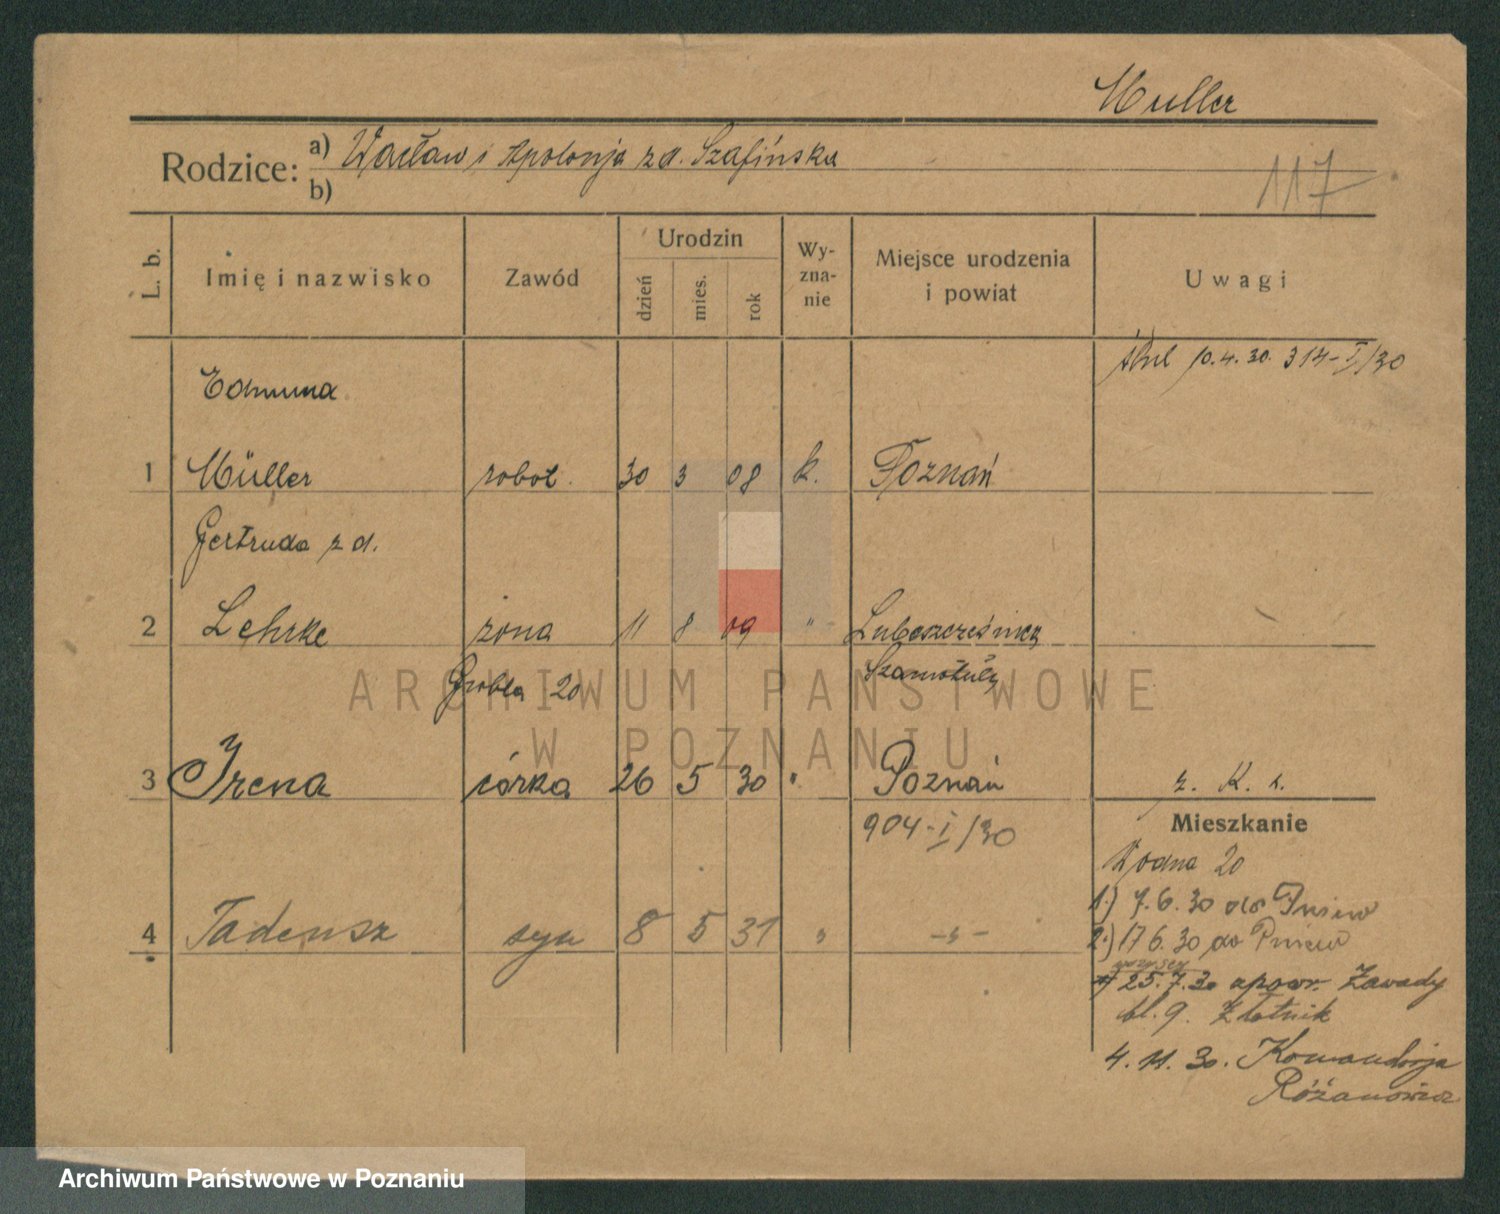 Muller
Rodzice: a) Wacław i Apolonja z d. Szafińska
b)
117
L. b.
Imię i nazwisko
Zawód
Urodzin
dzień
mies.
rok
Wy-
zna-
nie
Miejsce urodzenia
i powiat
Uwagi
10.4.30. 314-I/30
Edmund
1 Müller robot. 30 3 08 k. Poznań
Gertruda z d.
2 Lehrke żona 11 8 09 "
Szamotuły
Grobla 20
3 Irena córka 26 5 30 " Poznań z. K. s.
904-I/30
Mieszkanie
Wodna 20
1.) 7.6.30 do Pniew
4 Tadeusz syn 8 5 31 " -"-
2.) 17 6.30 do Pniew
25.7.30 z powr. Zawady
bl. 9. Złotnik
4.11.30. Komandorja
Różanowicz
ARCHIWUM PAŃSTWOWE
W POZNANIU
Archiwum Państwowe w Poznaniu